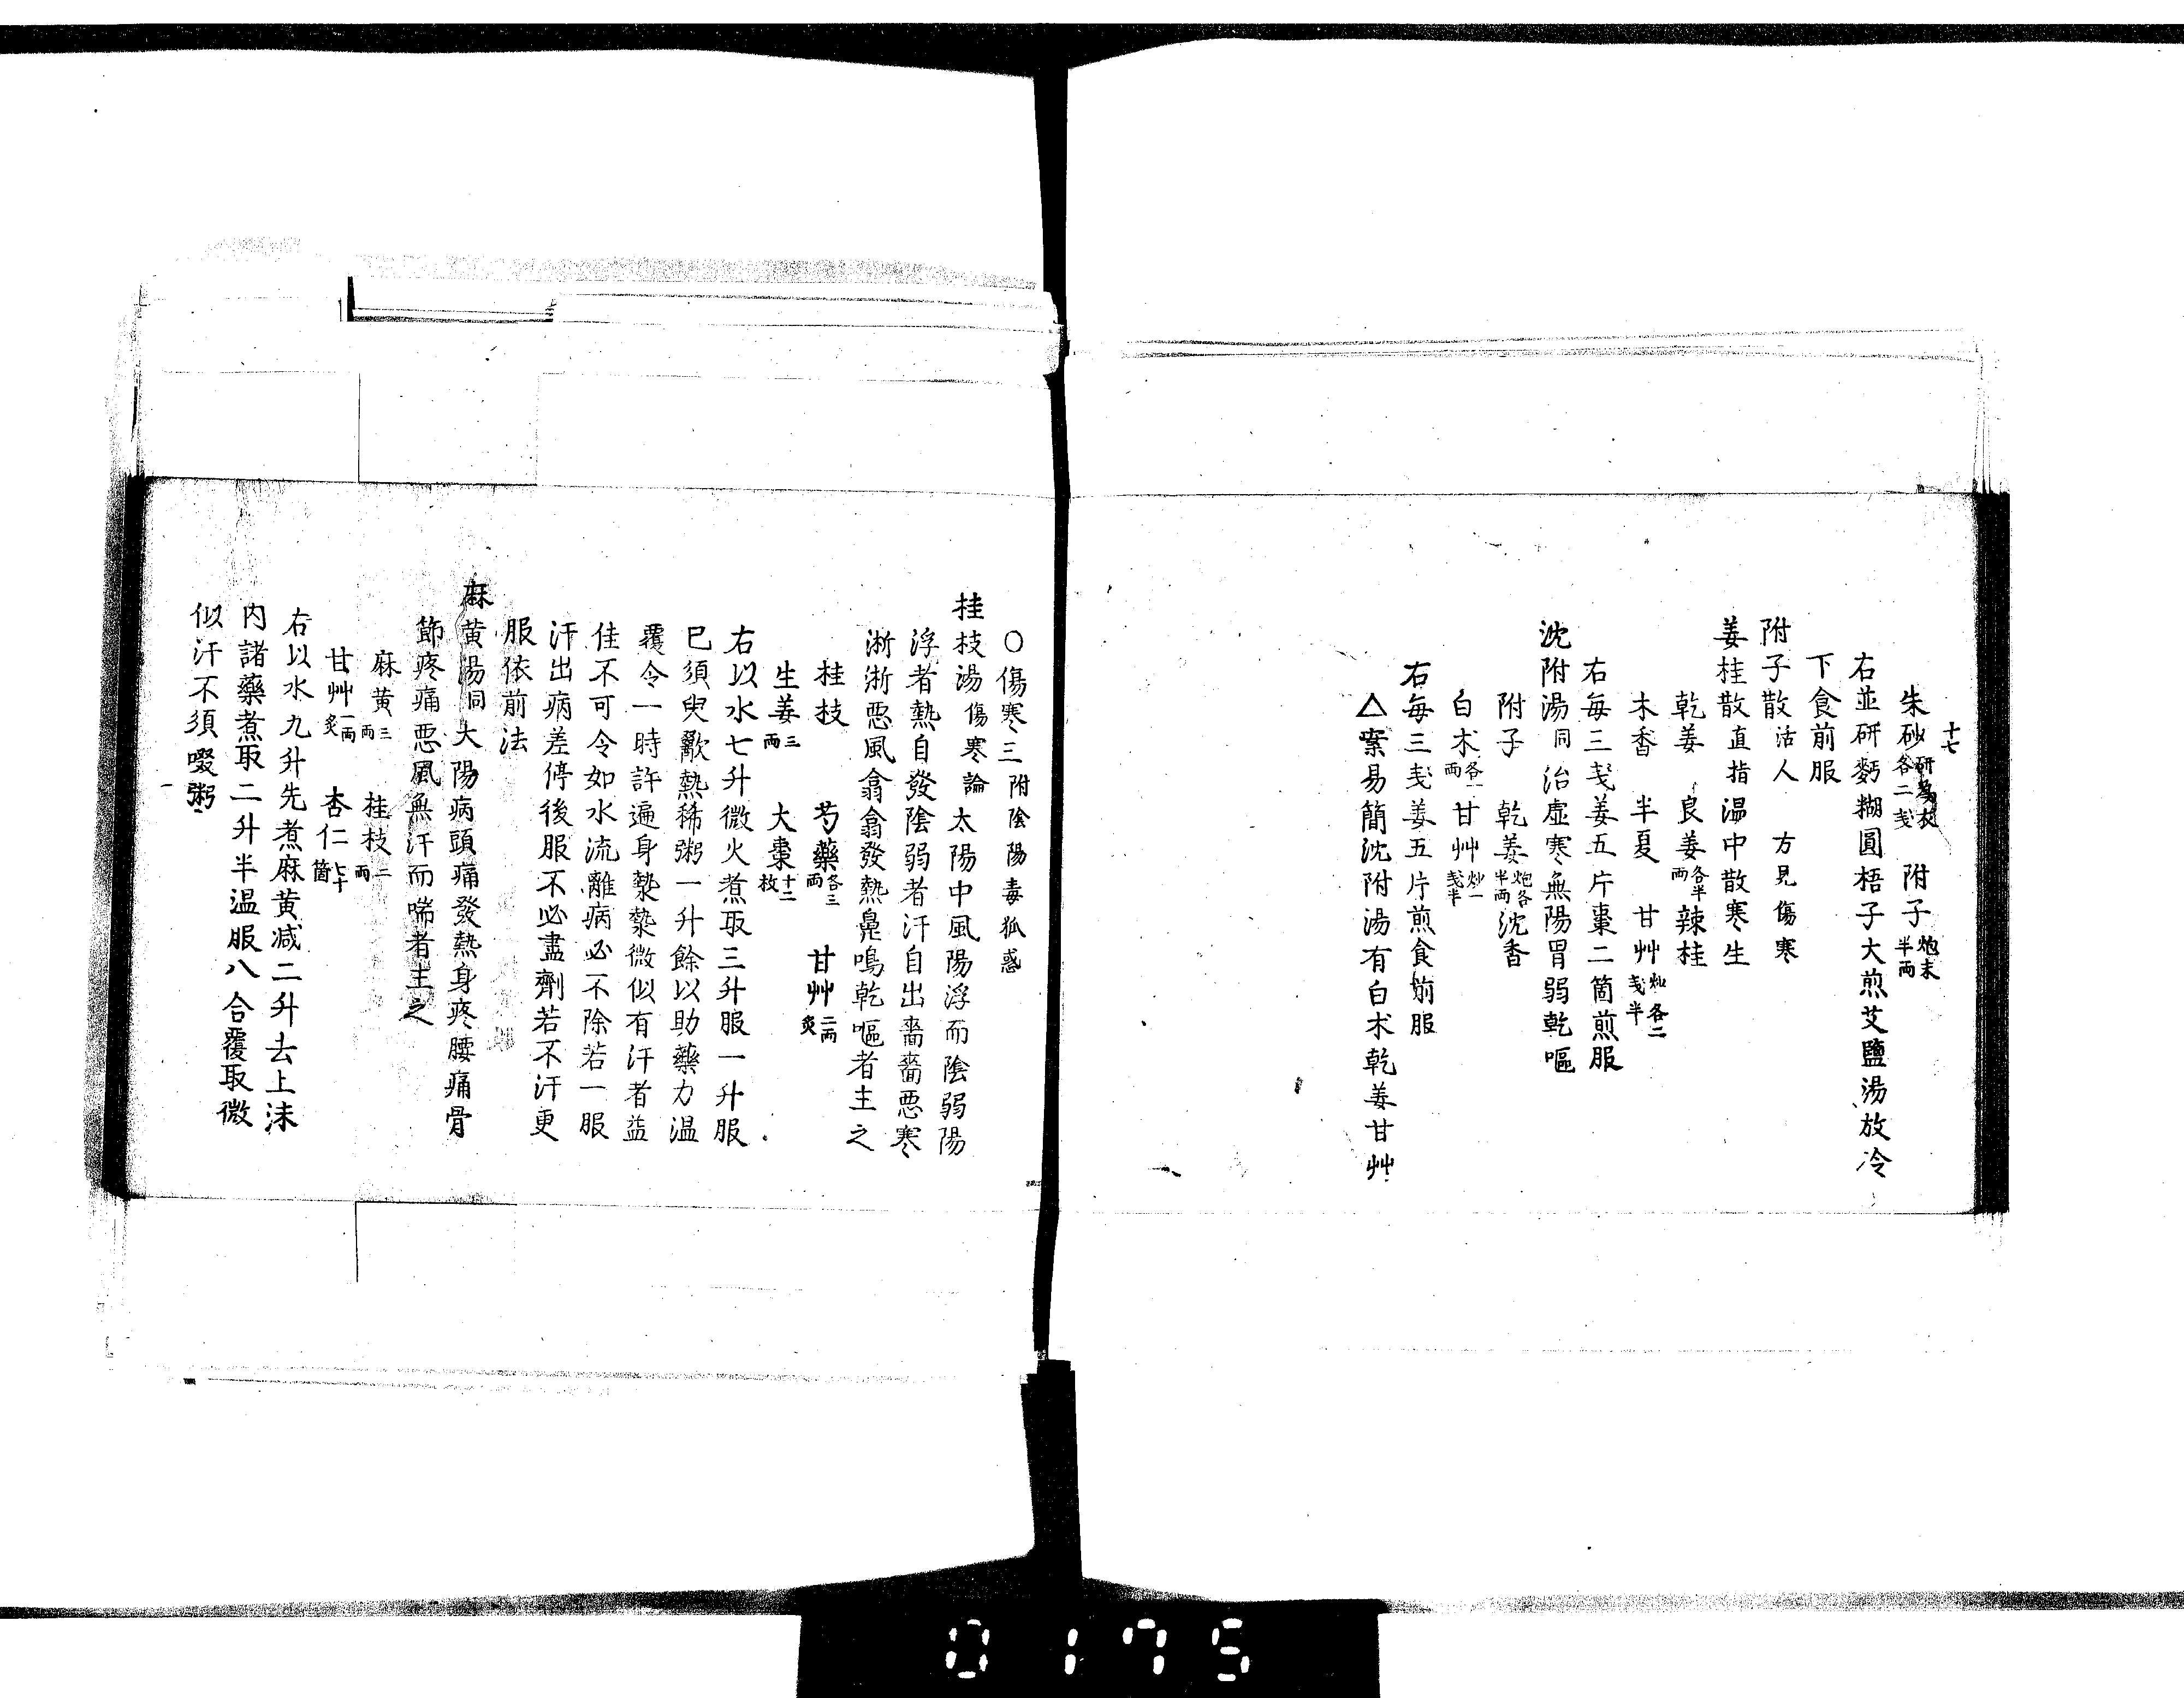 十七
朱砂研各二戔 附子炮末半両
右並研麪糊圓梧子大煎艾鹽湯放冷
下食前服
附子散活人 方見傷寒
姜桂散直指温中散寒生
乾姜 良姜各半両辣桂
木香 半夏 甘艸炒各二戔半
右毎三戔姜五片棗二箇煎服
沈附湯同治虚寒無陽胃弱乾嘔
附子 乾姜炮各半両沈香
白朮各一両甘艸炒一戔半
右毎三戔姜五片煎食前服
△案易簡沈附湯有白朮乾姜甘艸
○傷寒三附陰陽毒狐惑
桂枝湯傷寒論太陽中風陽浮而陰弱陽
浮者熱自發陰弱者汗自出嗇嗇悪寒
淅淅悪風翕翕發熱鼻鳴乾嘔者主之
桂枝 芍藥各三両 甘艸二両炙
生姜三両 大棗十二枚
右以水七升微火煮取三升服一升服
已須臾歠熱稀粥一升餘以助藥力温
覆令一時許遍身漐漐微似有汗者益
佳不可令如水流離病必不除若一服
汗出病差停後服不必盡劑若不汗更
服依前法
麻黄湯同太陽病頭痛發熱身疼腰痛骨
節疼痛悪風無汗而喘者主之
麻黄三両 桂枝二両
甘艸一両炙 杏仁七十箇
右以水九升先煮麻黄減二升去上沫
内諸藥煮取二升半温服八合覆取微
似汗不須啜粥
0175